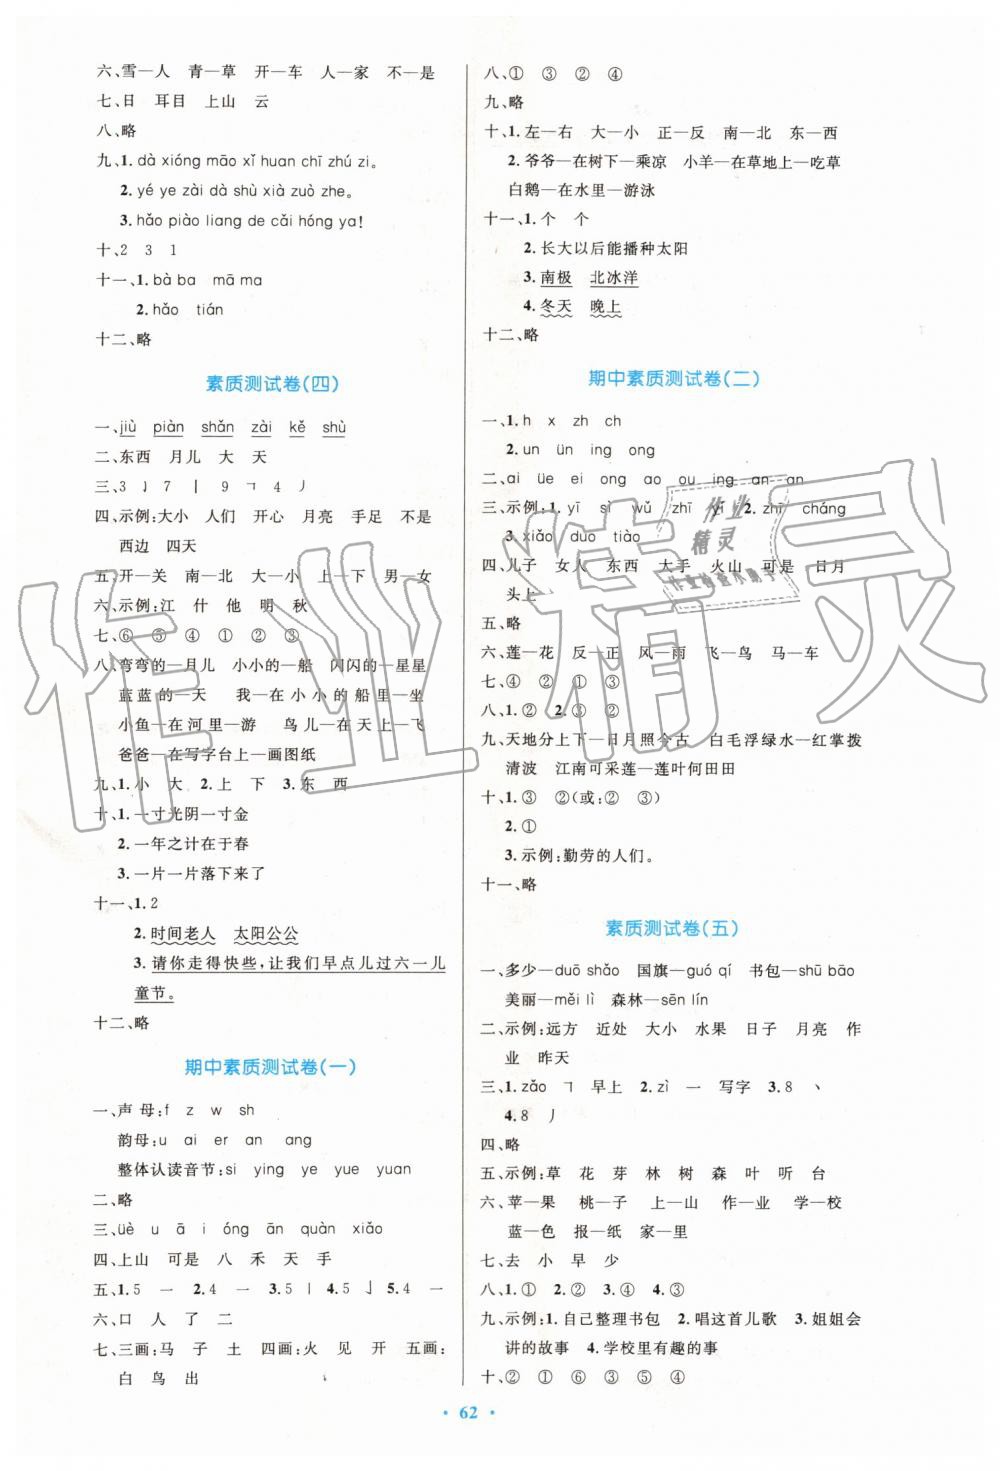 六、雪—人　青—草　开—车　人—家　不—是
七、日　耳目　上山　云
八、略
九、1. dà xióng māo xǐ huan chī zhú zi。
2. yé ye zài dà shù xià zuò zhe。
3. hǎo piào liang de cǎi hóng ya！
十、2　3　1
十一、1. bà ba　mā ma
2. hǎo　tián
十二、略
素质测试卷(四)
一、jiù　piàn　shǎn　zài　kě　shù
二、东西　月儿　大　天
三、3　亅　7　丨　9　㇕　4　丿
四、示例:大小　人们　开心　月亮　手足　不是
西边　四天
五、开—关　南—北　大—小　上—下　男—女
六、示例:江　什　他　明　秋
七、⑥　⑤　④　①　②　③
八、弯弯的—月儿　小小的—船　闪闪的—星星
蓝蓝的—天　我—在小小的船里—坐
小鱼—在河里—游　鸟儿—在天上—飞
爸爸—在写字台上—画图纸
九、1. 小　大　2. 上　下　3. 东　西
十、1. 一寸光阴一寸金
2. 一年之计在于春
3. 一片一片落下来了
十一、1. 2
2. 时间老人　太阳公公
3. 请你走得快些，让我们早点儿过六一儿
童节。
十二、略
期中素质测试卷(一)
一、声母:f　z　w　sh
韵母:u　ai　er　an　ang
整体认读音节:si　ying　ye　yue　yuan
二、略
三、üè　u　ā　i　óng　ān　quàn　xiǎo
四、上山　可是　八　禾　天　手
五、1. 5　一　2. 4　一　3. 5　丨　4. 5　亅　5. 4　一
六、口　人　了　二
七、三画:马　子　土　四画:火　见　开　五画:
白　鸟　出
八、①　③　②　④
九、略
十、1. 左—右　大—小　正—反　南—北　东—西
2. 爷爷—在树下—乘凉　小羊—在草地上—吃草
白鹅—在水里—游泳
十一、1. 个　个
2. 长大以后能播种太阳
3. 南极　北冰洋
4. 冬天　晚上
十二、略
期中素质测试卷(二)
一、1. h　x　zh　ch
2. un　ün　ing　ong
二、ai　üe　ei　ong　ao　ou　ing　an　an
三、示例:1. yī　sì　wǔ　zhī　yì　2. zhī　cháng
3. xiǎo　duo　tiào
四、儿子　女人　东西　大手　火山　可是　日月
头上
五、略
六、莲—花　反—正　风—雨　飞—鸟　马—车
七、④　②　①　③
八、1. ①　②　2. ③　①　②
九、天地分上下—日月照今古　白毛浮绿水—红掌拨
清波　江南可采莲—莲叶何田田
十、1. ③　②(或:②　③)
2. ①
3. 示例:勤劳的人们。
十一、略
素质测试卷(五)
一、多少—duō shǎo　国旗—guó qí　书包—shū bāo
美丽—měi lì　森林—sēn lín
二、示例:远方　近处　大小　水果　日子　月亮　作
业　昨天
三、1. zǎo　㇕　早上　2. zì　一　写字　3. 8　丶
4. 8　丿
四、略
五、示例:草　花　芽　林　树　森　叶　听　台
六、苹—果　桃—子　上—山　作—业　学—校
蓝—色　报—纸　家—里
七、去　小　早　少
八、1. ①　2. ②　3. ④　4. ③
九、示例:1. 自己整理书包　2. 唱这首儿歌　3. 姐姐会
讲的故事　4. 学校里有趣的事
十、②　①　⑥　③　⑤　④
· 62 ·
作业精灵
作业
精灵